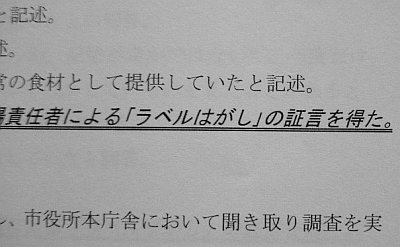 と記述。
述。
常の食材として提供していたと記述。
場責任者による「ラベルはがし」の証言を得た。
し、市役所本庁舎において聞き取り調査を実